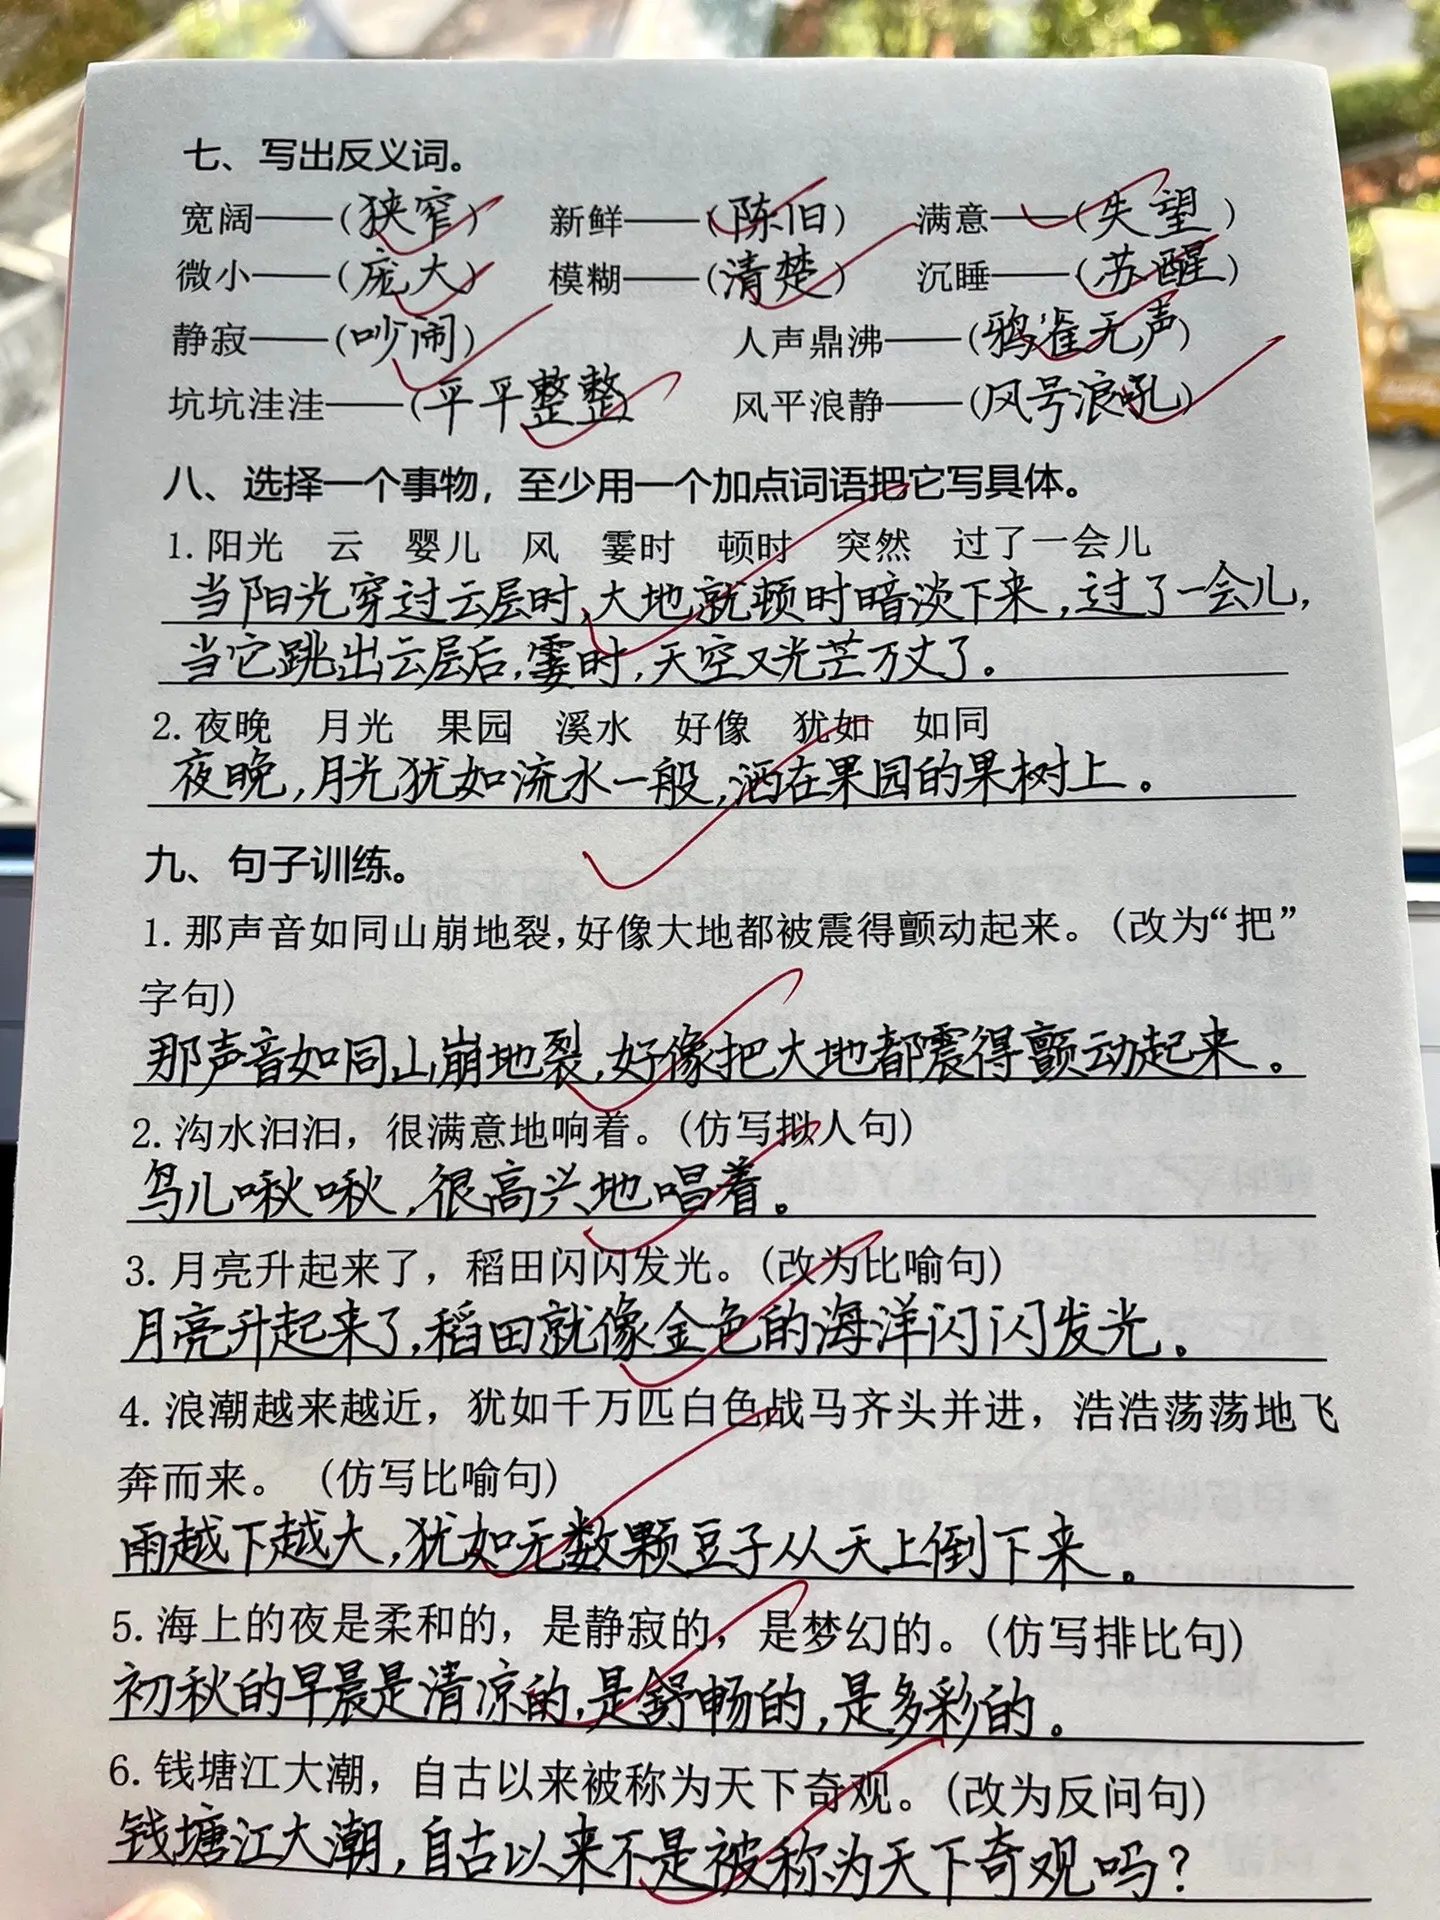 七、写出反义词。
宽阔——(狭窄) 新鲜——(陈旧) 满意——(失望)
微小——(庞大) 模糊——(清楚) 沉睡——(苏醒)
静寂——(吵闹) 人声鼎沸——(鸦雀无声)
坑坑洼洼——(平平整整) 风平浪静——(风号浪吼)
八、选择一个事物，至少用一个加点词语把它写具体。
1. 阳光 云 婴儿 风 霎时 顿时 突然 过了一会儿
当阳光穿过云层时,大地就顿时暗淡下来,过了一会儿,
当它跳出云层后,霎时,天空又光芒万丈了。
2. 夜晚 月光 果园 溪水 好像 犹如 如同
夜晚,月光犹如流水一般,洒在果园的果树上。
九、句子训练。
1. 那声音如同山崩地裂,好像大地都被震得颤动起来。(改为“把”
字句)
那声音如同山崩地裂,好像把大地都震得颤动起来。
2. 沟水汩汩，很满意地响着。(仿写拟人句)
鸟儿啾啾,很高兴地唱着。
3. 月亮升起来了，稻田闪闪发光。(改为比喻句)
月亮升起来了,稻田就像金色的海洋闪闪发光。
4. 浪潮越来越近，犹如千万匹白色战马齐头并进，浩浩荡荡地飞
奔而来。 (仿写比喻句)
雨越下越大,犹如无数颗豆子从天上倒下来。
5. 海上的夜是柔和的，是静寂的，是梦幻的。(仿写排比句)
初秋的早晨是清凉的,是舒畅的,是多彩的。
6. 钱塘江大潮，自古以来被称为天下奇观。(改为反问句)
钱塘江大潮,自古以来不是被称为天下奇观吗?